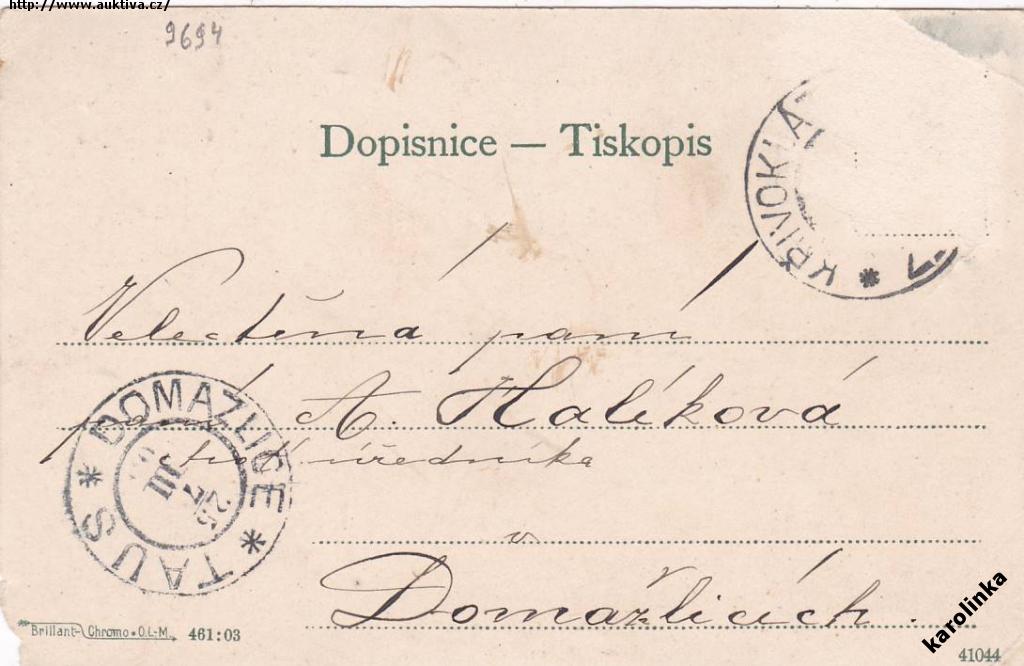 http://www.auktiva.cz/
9694
Dopisnice — Tiskopis
KŘIVOKLÁT *
Velectěná paní
paní A. Halíková
choť úředníka
v
Domažlicích.
* DOMAŽLICE * TAUS
III
25/7
Brillant-Chromo • O.L-M. 461:03
karolinka
41044